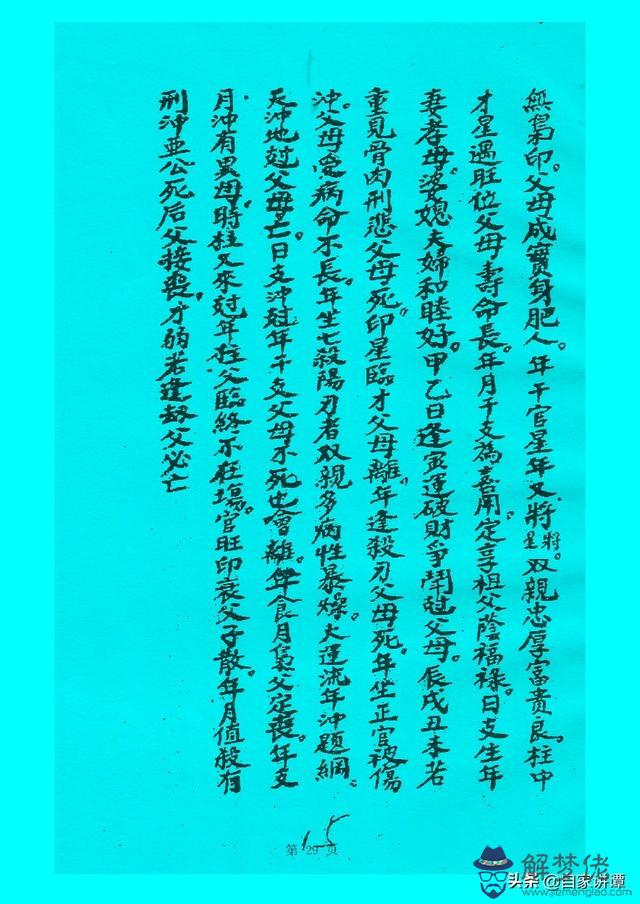 無梟印。父母成實身肥人。年干官星年又將將星。双親忠厚富貴良。柱中
才星遇旺位父母壽命長。年月干支為喜用。定享祖父蔭福祿。日支生年
妻孝母。婆媳夫婦和睦好。甲乙日逢寅運破財爭鬪尅父母。辰戌丑未若
重見骨肉刑悲父母死。印星臨才父母離。年逢殺刃父母死。年坐正官被傷
沖。父母受病命不長。年生七殺陽刃者双親多病性暴燥。大運流年沖題綱。
天沖地尅父母亡。日支沖尅年干支父母不死也會離。年食月梟父定喪。年支
月沖有異母。時柱又來尅年柱父臨終不在場。官旺印衰父子散。年月值殺有
刑沖亜公死后父接喪。才弱若逢劫父必亡
第 29 页
15
解梦佬
www.jiemenglao.com
头条 @自家讲谭